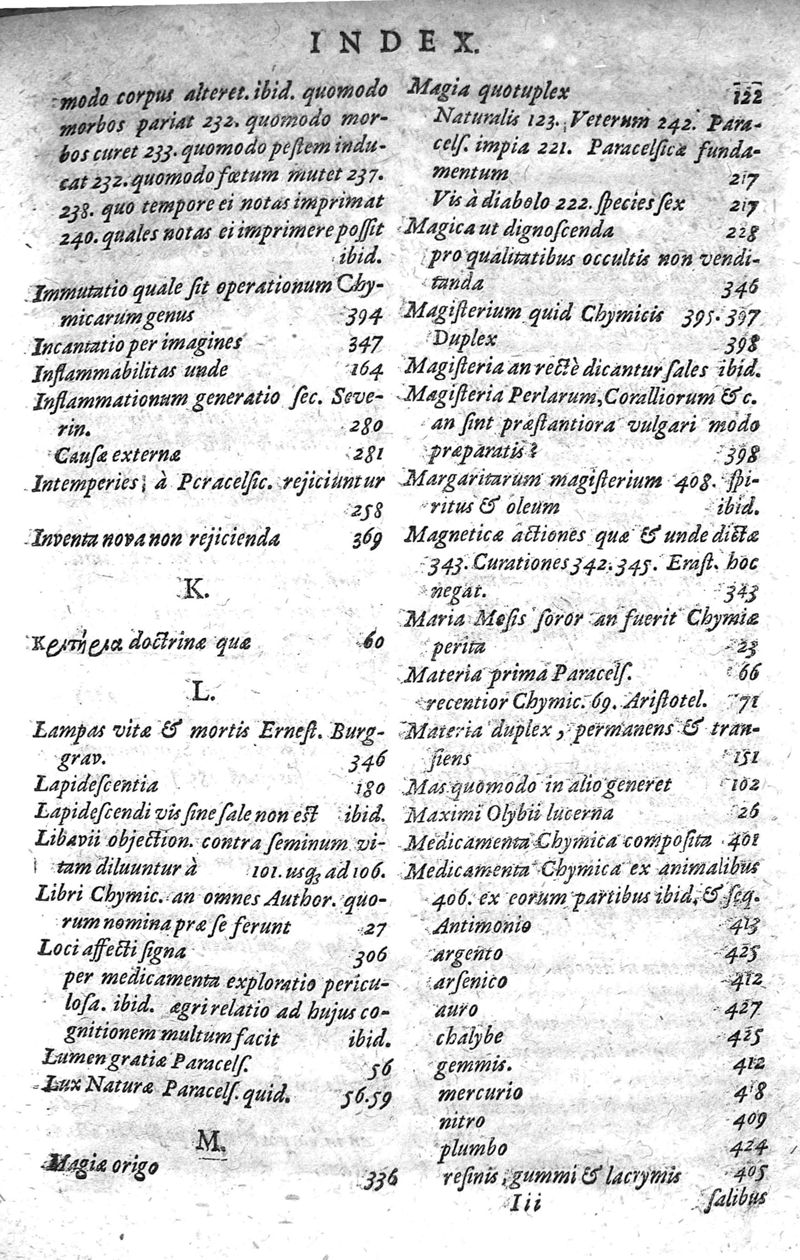 INDEX.
modo corpus alteret. ibid. quomodo
morbos pariat 232. quomodo mor-
bos curet 233. quomodo peſtem indu-
cat 232. quomodo fœtum mutet 237.
238. quo tempore ei notas imprimat
240. quales notas ei imprimere poſſit
ibid.
Immutatio quale ſit operationum Chy-
micarum genus 394
Incantatio per imagines 347
Inflammabilitas unde 164
Inflammationum generatio ſec. Seve-
rin. 280
Cauſæ externæ 281
Intemperies à Pcracelſic. rejiciuntur
258
Inventa nova non rejicienda 369
K.
Κριτήρια doctrinæ quæ 60
L.
Lampas vitæ & mortis Erneſt. Burg-
grav. 346
Lapideſcentia 180
Lapideſcendi vis ſine ſale non eſt ibid.
Libavii objection. contra ſeminum vi-
tam diluuntur à 101. uſq; ad 106.
Libri Chymic. an omnes Author. quo-
rum nomina præ ſe ferunt 27
Loci affecti ſigna 306
per medicamenta exploratio pericu-
loſa. ibid. ægri relatio ad hujus co-
gnitionem multum facit ibid.
Lumen gratiæ Paracelſ. 56
Lux Naturæ Paracelſ. quid. 56.59
M.
Magiæ origo 336
Magia quotuplex 122
Naturalis 123. Veterum 242. Para-
celſ. impia 221. Paracelſicæ funda-
mentum 217
Vis à diabolo 222. ſpecies ſex 217
Magica ut dignoſcenda 228
pro qualitatibus occultis non vendi-
tanda 346
Magiſterium quid Chymicis 395.397
Duplex 398
Magiſteria an rectè dicantur ſales ibid.
Magiſteria Perlarum, Coralliorum & c.
an ſint præſtantiora vulgari modo
præparatis? 398
Margaritarum magiſterium 408. ſpi-
ritus & oleum ibid.
Magneticæ actiones quæ & unde dictæ
343. Curationes 342.345. Eraſt. hoc
negat. 343
Maria Moſis ſoror an fuerit Chymiæ
perita 23
Materia prima Paracelſ. 66
recentior Chymic. 69. Ariſtotel. 71
Materia duplex, permanens & tran-
ſiens 151
Mas quomodo in alio generet 102
Maximi Olybii lucerna 26
Medicamenta Chymica compoſita 401
Medicamenta Chymica ex animalibus
406. ex eorum partibus ibid, & ſeq.
Antimonio 413
argento 425
arſenico 412
auro 427
chalybe 425
gemmis. 412
mercurio 418
nitro 409
plumbo 424
reſinis, gummi & lacrymis 405
Iii ſalibus